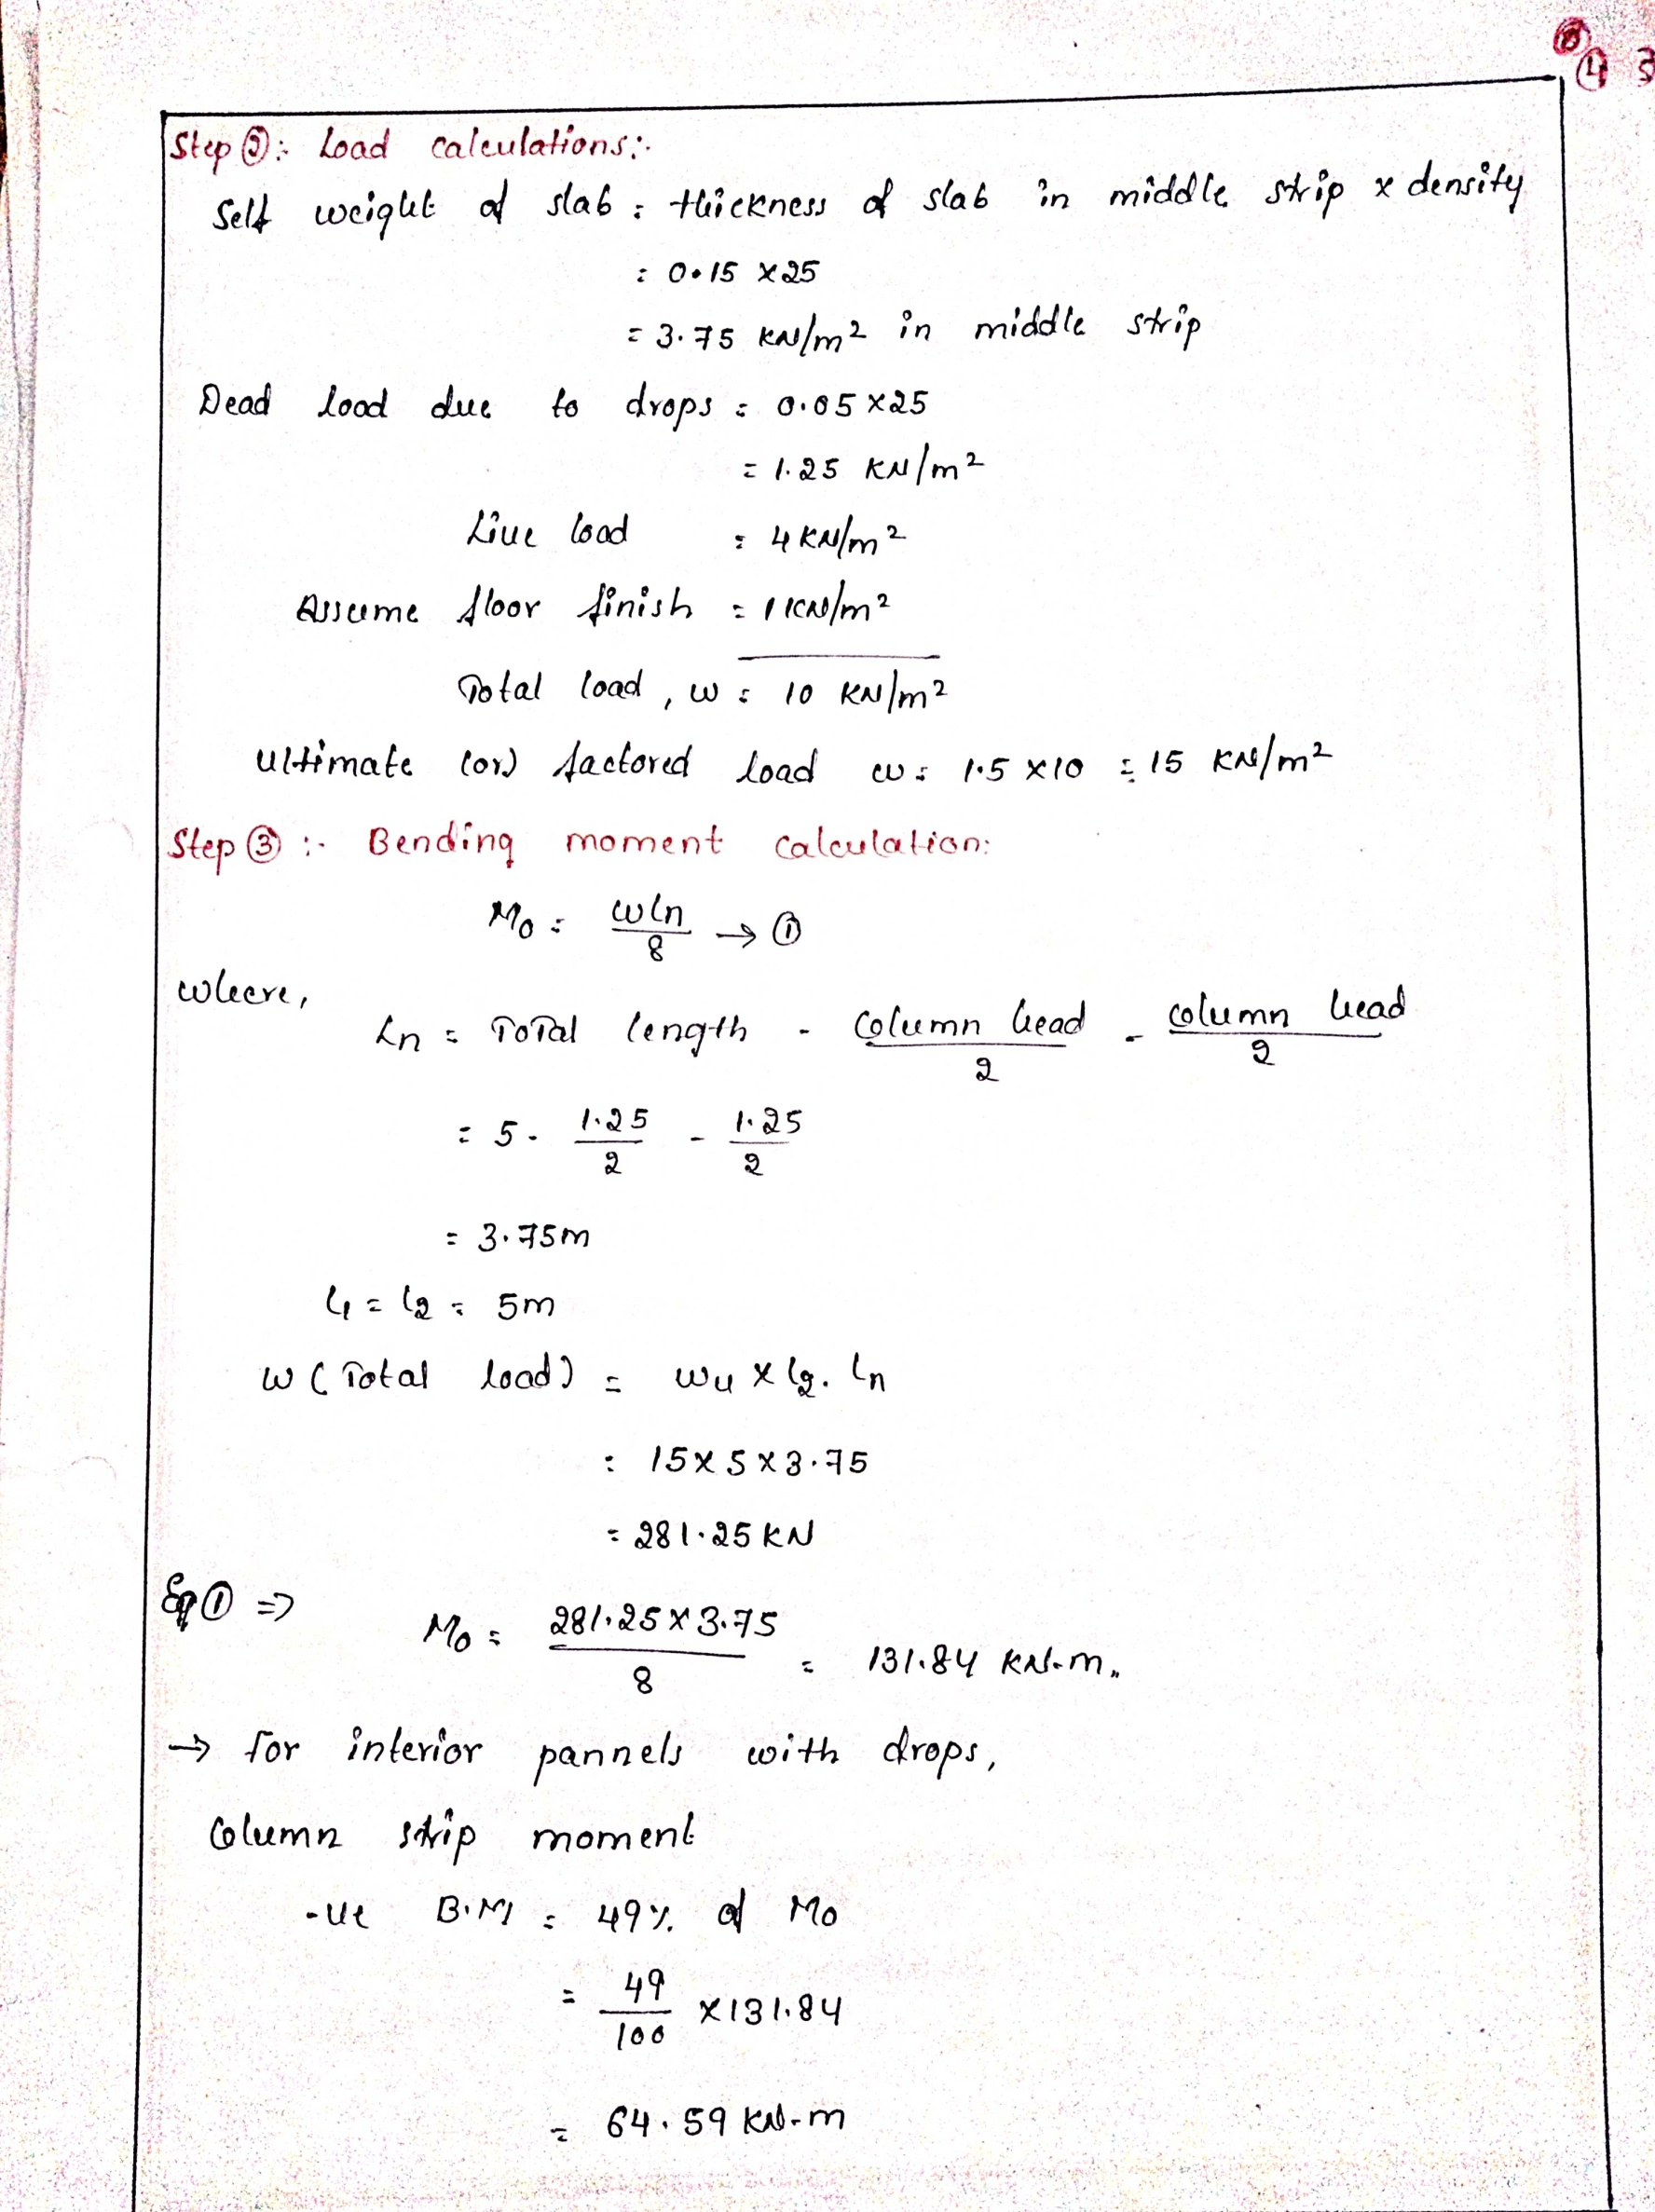 ④ 3
Step ②:- Load calculations:-
Self weight of slab = thickness of slab in middle strip x density
= 0.15 x 25
= 3.75 KN/m² in middle strip
Dead load due to drops = 0.05 x 25
= 1.25 KN/m²
Live load = 4 KN/m²
Assume floor finish = 1 KN/m²
Total load, w = 10 KN/m²
Ultimate (or) factored load w = 1.5 x 10 = 15 KN/m²
Step ③ :- Bending moment calculation:
Mo = wln/8 → ①
where,
Ln = Total length - column head/2 - column head/2
= 5 - 1.25/2 - 1.25/2
= 3.75m
l1 = l2 = 5m
W (Total load) = wu x l2. ln
= 15 x 5 x 3.75
= 281.25 KN
Eq ① ⇒ Mo = 281.25 x 3.75/8 = 131.84 KN-m.
→ for interior pannels with drops,
Column strip moment
-ve B.M = 49% of Mo
= 49/100 x 131.84
= 64.59 KN-m